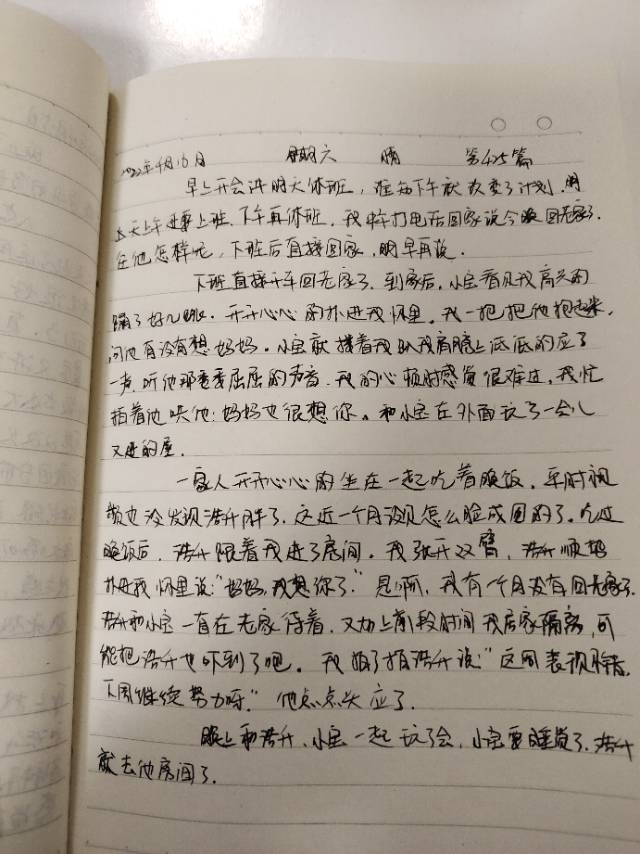 2022年4月16日 星期六 晴 第425篇
早上开会讲明天休班，谁知下午就改变了计划，明
天上午还要上班，下午再休班，我打电话回家说今晚回老家了，
管他怎样呢，下班后直接回家，明早再说。
下班直接开车回老家了，到家后，小宝看见我高兴的
蹦了好几蹦，开开心心的扑进我怀里，我一把把他抱起来，
问他有没有想妈妈。小宝就搂着我趴我肩膀上低低的应了
一声，听他那委委屈屈的声音，我的心顿时感觉很难过，我忙
拍着他哄他：妈妈也很想你。和小宝在外面玩了一会儿
又进的屋。
一家人开开心心的坐在一起吃着晚饭，平时视
频也没发现浩升胖了，这近一个月没见怎么脸成圆的了。吃过
晚饭后，浩升跟着我进了房间，我张开双臂，浩升顺势
扑进我怀里说：“妈妈，我想你了。”是啊，我有一个月没有回老家了，
浩升和小宝一直在老家待着，又加上前段时间我居家隔离，可
能把浩升也吓到了吧。我拍了拍浩升说：“这周表现不错，
下周继续努力呀。”他点点头应了。
晚上和浩升、小宝一起玩了会，小宝要睡觉了，浩升
就去他房间了。